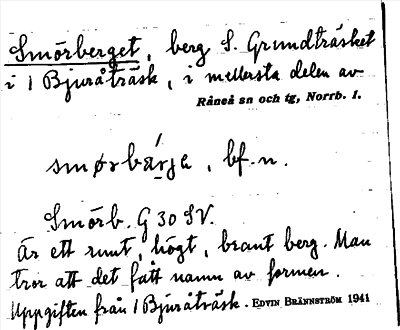 Smörberget, berg S. Grundträsket
i 1 Bjuråträsk, i mellersta delen av
Råneå sn och tg, Norrb. l.
smørbærja, bf. n.
Smörb. G 30 SV.
Är ett runt, högt, brant berg. Man
tror att det fått namn av formen.
Uppgiften från 1 Bjuråträsk. EDVIN BRÄNNSTRÖM 1941